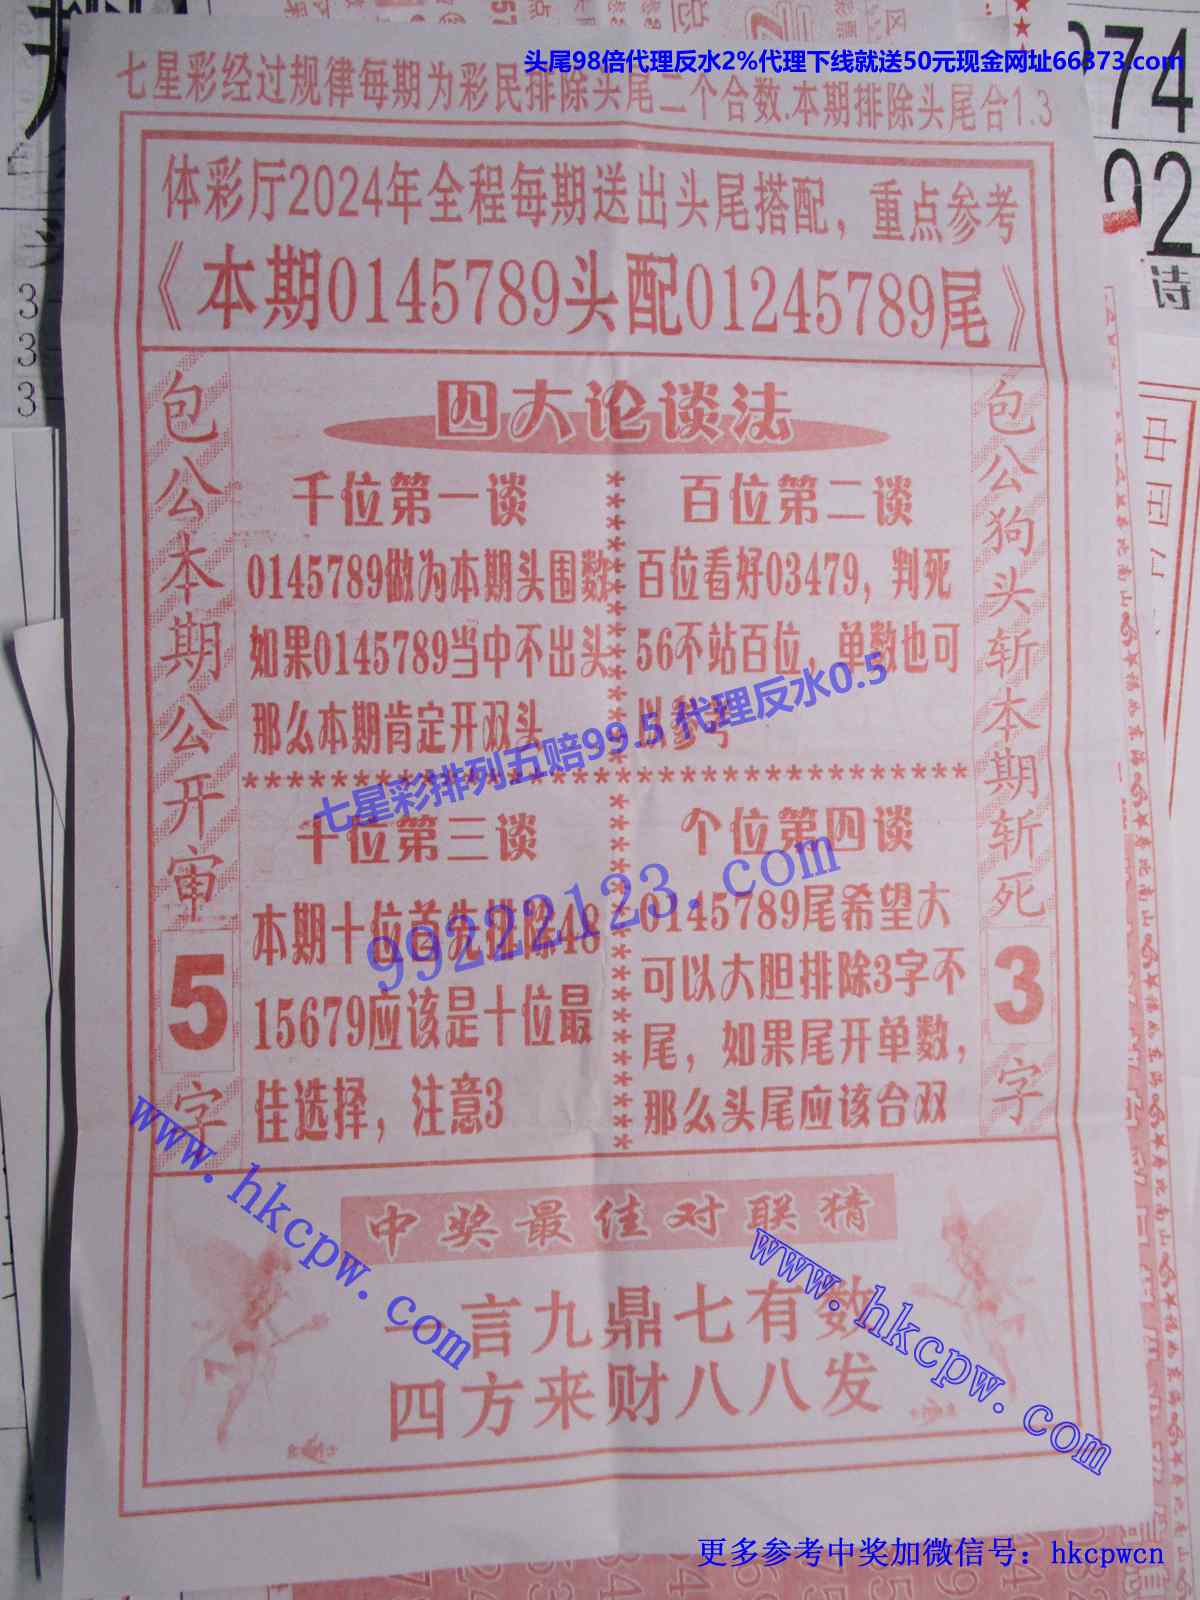 头尾98倍代理反水2%代理下线就送50元现金网址66373.com
七星彩经过规律每期为彩民排除头尾二个合数.本期排除头尾合1.3
体彩厅2024年全程每期送出头尾搭配，重点参考
《本期0145789头配01245789尾》
包公本期公开审5字
四大论谈法
千位第一谈
0145789做为本期头围数
如果0145789当中不出头
那么本期肯定开双头
百位第二谈
百位看好03479，判死
56不站百位，单数也可
以参考
*********************************
七星彩排列五赔99.5 代理反水0.5
99222123.com
十位第三谈
本期十位首先排除48
15679应该是十位最
佳选择，注意3
个位第四谈
0145789尾希望大
可以大胆排除3字不
尾，如果尾开单数，
那么头尾应该合双
包公狗头斩本期斩死3字
www.hkcpw.com
www.hkcpw.com
中奖最佳对联猜
一言九鼎七有数
四方来财八八发
更多参考中奖加微信号：hkcpwcn
974
92
诗
3
3
3